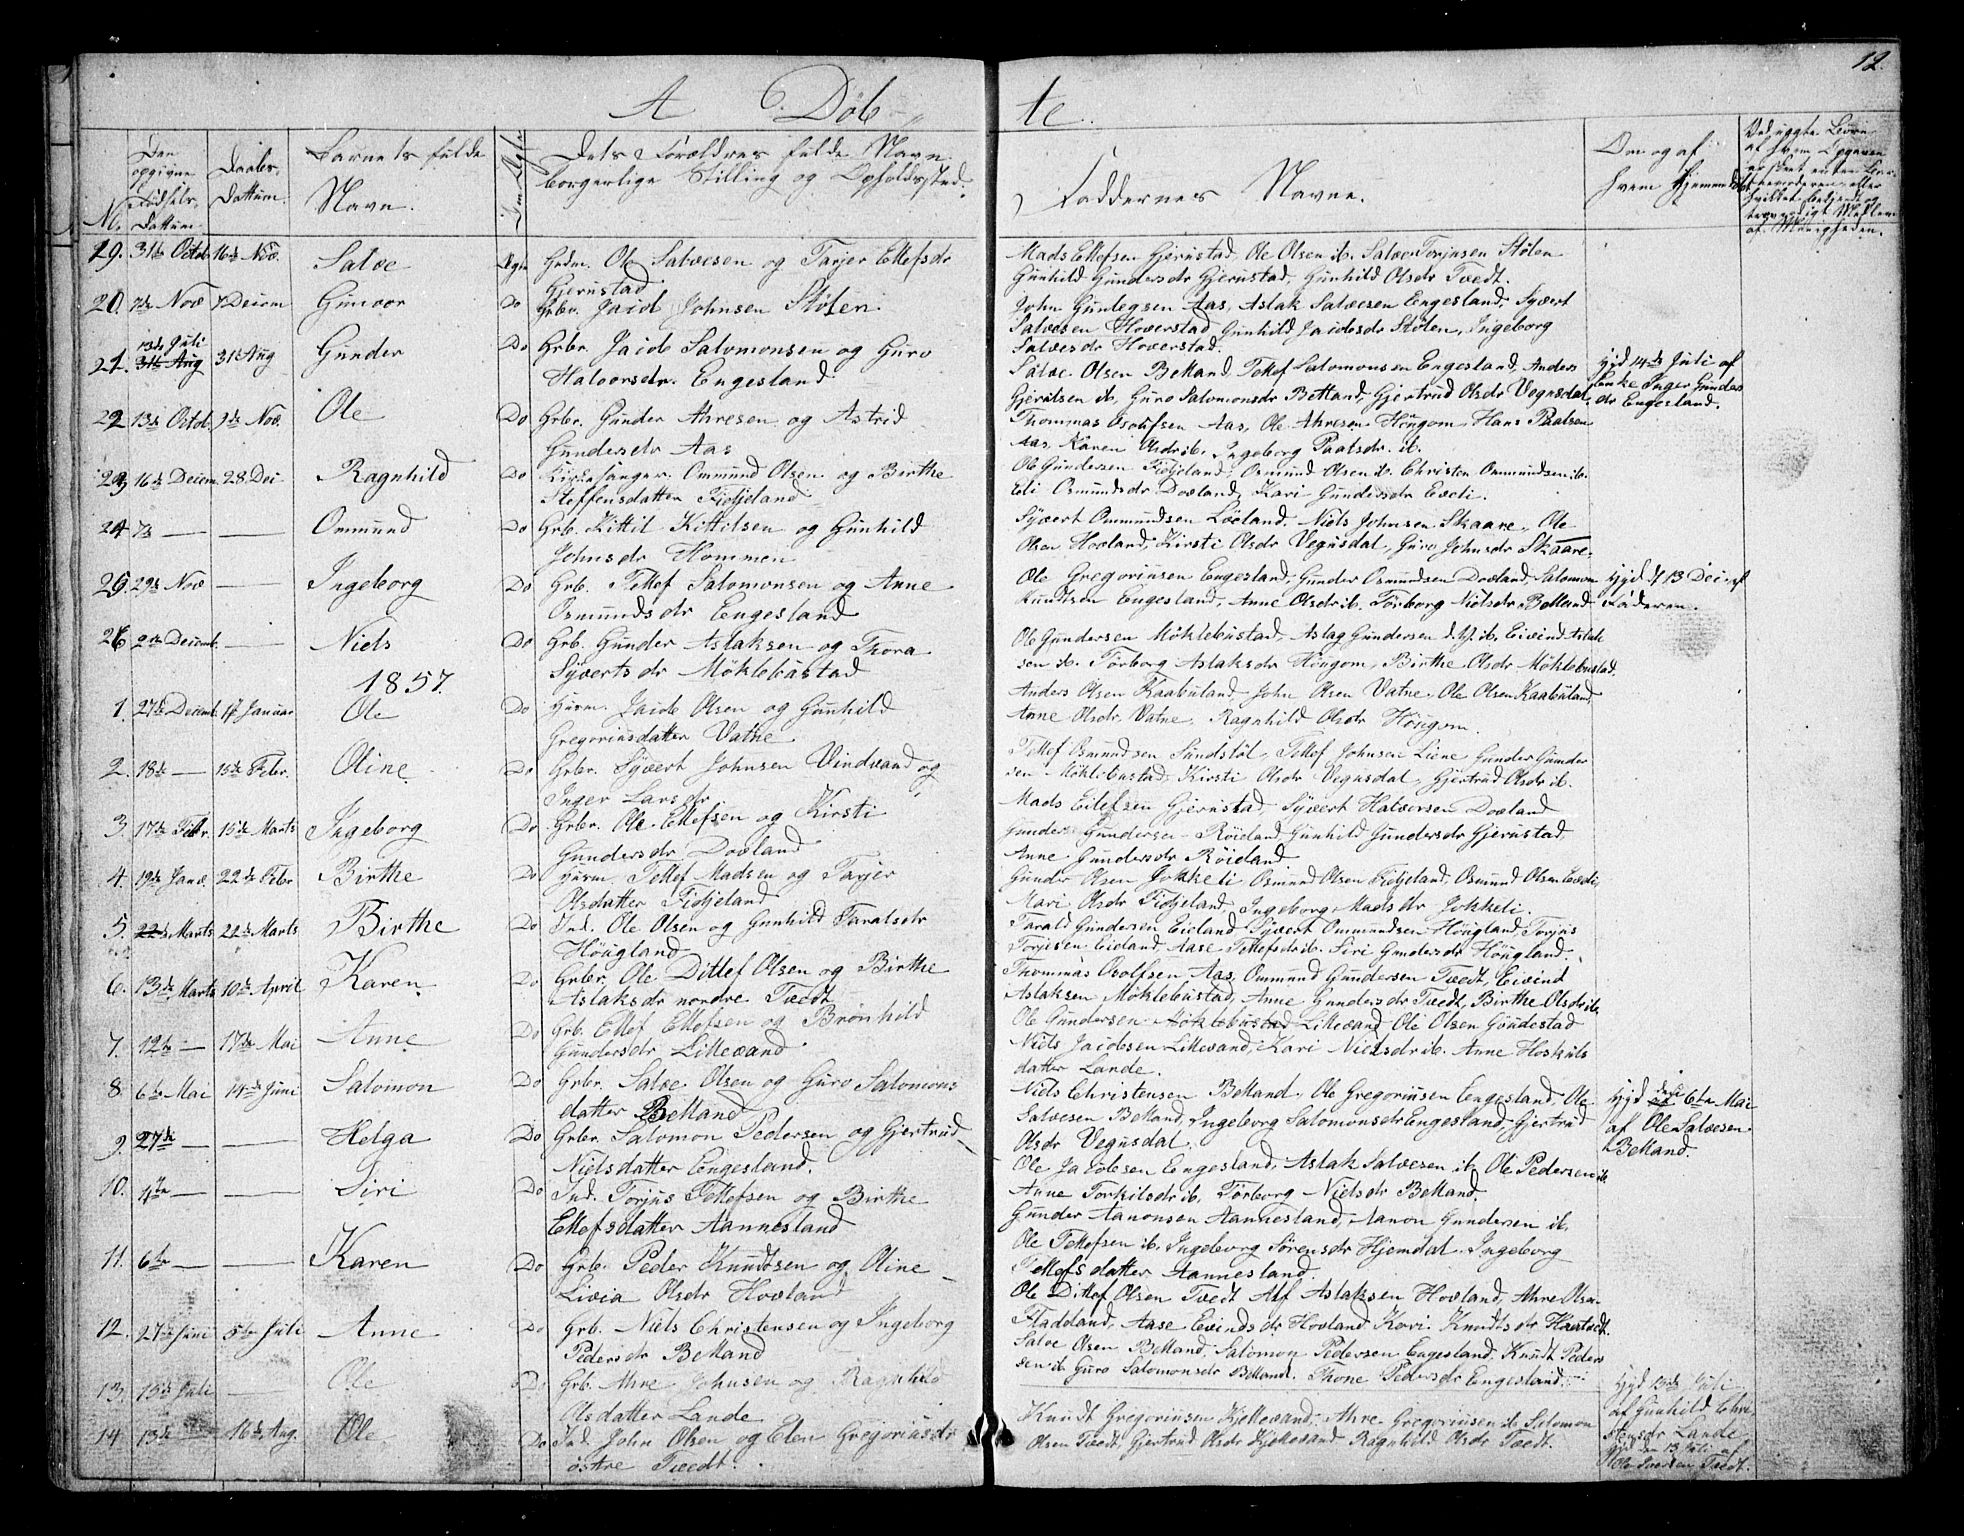 12.
A. Døb-
te.
No.
Den opgivne Fødsels Dattum.
Daabs Dattum.
Barnets fulde Navn.
Dets Forældres fulde Navn borgerlige Stilling og Opholdssted.
Faddernes Navne.
Om og af hvem Hjemmedøbt
19. 31te Octob 16de Nov. Salve Ægte Grdm. Ole Salvesen og Tarjer Ellefsdr
Gjerustad
Mads Ellefsen Gjerustad, Ole Olsen ib. Salve Torjusen Stølen
Gunhild Gundersdr Gjerustad, Gunhild Olsdr Tvedt.
20. 7de Nov 7 Decem Gunvor Do Grbr. Jacob Johnsen Stølen.
John Gunlegsen Aas, Aslak Salvesen Engesland, Syvert
Salvesen Hoverstad, Gunhild Jacobsdr Stølen, Ingeborg
Salvesdr Hoverstad.
21. 13de Juli 31te Aug 31te Aug Gunder Do Grbr. Jacob Salomonsen og Guro
Halvorsdr. Engesland
Salve Olsen Belland, Tellef Salomonsen Engesland, Anders
Gjeruldsen ib, Guro Salomonsdr Belland, Gjertrud Olsdr Vegusdal.
Hjd 14de Juli af
Enke Inger Gunders
dr Engesland.
22 13de Octob. 1ste Nov. Ole Do Grbr. Gunder Ahresen og Astrid
Gundersdr Aas
Thommas Osolfsen Aas, Ole Ahresen Høugom, Hans Paalsen
Aas, Karen Olsdr ib. Ingeborg Paalsdr. ib.
23 16de Decem. 28 Dec Ragnhild Do Kirkesanger Ommund Olsen og Birthe
Steffensdatter Fidjeland
Ole Gundersen Fidjeland, Osmund Olsen ib. Christen Ommundsen ib.
Eli Osmundsdr Dovland, Kari Gundersdr Eveli.
24 7de — — Ommund Do Grb. Kittil Kittilsen og Gunhild
Johnsdr Hommen
Syvert Ommundsen Løvland, Niels Johnsen Skaare, Ole
Olsen Hovland, Kirsti Olsdr Vegusdal, Guro Johnsdr Skaare.
25. 29de Nov — Ingeborg Do Grb. Tellef Salomonsen og Anne
Osmundsdr Engesland
Ole Gregoriusen Engesland, Gunder Osmundsen Dovland, Salomon
Knudtsen Engesland, Anne Olsdr ib. Torborg Nielsdr Belland
Hjd d 13 Dec. af
Faderen.
26 2de Decemb. — Niels Do Grb. Gunder Aslaksen og Thora
Syvertsdr Møklebustad
Ole Gundersen Møklebustad, Aslag Gundersen d. Y. ib. Eivind Aslak
sen ib. Torborg Aslaksdr Høugom, Birthe Olsdr Møklebustad.
1857.
1. 27de Decemb. 17 Januar Ole Do Husm. Jacob Olsen og Gunhild
Gregoriusdatter Vatne
Anders Olsen Kaabuland, John Olsen Vatne, Ole Olsen Kaabuland,
Anne Olsdr. Vatne, Ragnhild Olsdr Høugom.
2. 18de — 15de Febr. Oline Do Grbr. Syvert Johnsen Vindvand og
Inger Larsdr
Tellef Osmundsen Sundstøl, Tellef Johnsen Liene, Gunder Gunder
sen Møklebustad, Kirsti Olsdr Vegusdal, Gjertrud Olsdr ib.
3. 17de Febr. 15de Marts Ingeborg Do. Grbr. Ole Ellefsen og Kirsti
Gundersdr Dovland
Mads Eilefsen Gjerustad, Syvert Halvorsen Dovland
Gunder Gundersen Røiland, Gunhild Gundersdr Gjerustad,
Anne Gundersdr Røiland
4. 19de Janv. 22de Febr Birthe Do Husm. Tellef Madsen og Tarjer
Olsdatter Fidjeland
Gunder Olsen Jokkeli, Osmund Olsen Fidjeland, Osmund Olsen Eveli,
Mari Olsdr Fidjeland, Ingeborg Madsdr Jokkeli.
5. 22de Marts 22de Marts Birthe Do Ind. Ole Olsen og Gunhild Taralsdr
Høugland
Tarald Gundersen Eieland, Syvert Ommundsen Høugland, Torjus
Torjesen Eieland, Aase Tellefsdr ib. Siri Gundersdr Høugland.
6. 13de Marts 10de April Karen Do Grbr. Ole Ditlef Olsen og Birthe
Aslaksdr nordre Tvedt
Thommas Osolfsen Aas, Ommund Gundersen Tvedt, Eivind
Aslaksen Møklebustad, Anne Gundersdr Tvedt, Birthe Olsdr ib.
7. 12te — 17de Mai Anne Do Grb. Ellef Ellefsen og Brønhild
Gundersdr Lillevand
Ole Gundersen Møklebustad Lillevand, Ole Olsen Goudestad
Niels Jacobsen Lillevand, Kari Nielsdr ib. Anne Hoskuls
datter Lande.
8 6te Mai 14de Juni Salomon Do Grbr. Salve Olsen og Guro Salomons
datter Belland
Niels Christensen Belland, Ole Gregoriusen Engesland, Ole
Salvesen Belland, Ingeborg Salomonsdr Engesland, Gjertrud
Olsdr Vegusdal.
Hjd 6te Mai
af Ole Salvesen
Belland.
9. 27de — — Helga Do Grbr. Salomon Pedersen og Gjertrud
Nielsdatter Engesland.
Ole Jacobsen Engesland, Aslak Salvesen ib. Ole Pedersen ib.
Anne Torkilsdr ib. Torborg Nielsdr Belland.
10. 4de — — Siri Do Ind. Torjus Tellefsen og Birthe
Ellefsdatter Aannesland
Gunder Aanonsen Aannesland, Aanon Gundersen ib.
Ole Tellefsen ib. Ingeborg Sørensdr Hjemdal, Ingeborg
Tellefsdatter Aannesland.
11. 6te — — Karen Do Grb. Peder Knudtsen og Oline
Livia Olsdr Hovland
Ole Ditlef Olsen Tvedt, Alf Aslaksen Hovland, Ahre Olsen
Fladdland, Aase Eivindsdr Hovland, Kari Knudtsdr
12. 27de Juni 5te Juli Anne Do Grb. Niels Christensen og Ingeborg
Pedersdr Belland
Salve Olsen Belland, Salomon Pedersen Engesland, Knudt Peders
sen ib. Guro Salomonsdr Belland. Thone Pedersdr Engesland.
13. 15de Juli — Ole Do Grb. Ahre Johnsen og Ragnhild
Olsdatter Lande
Knudt Gregoriusen Kjellevand, Ahre Gregoriusen ib. Salomon
Hjd 13de Juli
af Gunhild Chri
stensdr Lande
14 13de — 16de Aug. Ole Do Ind. John Olsen og Elen Gregoriusdr
østre Tvedt.
Olsen Tvedt, Gjertrud Olsdr Kjellevand Ragnhild Olsdr Tvedt.
Hjd den 13 Juli af